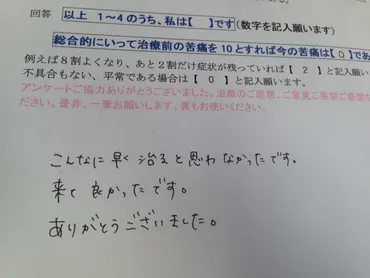 回答 以上 1～4のうち、私は【 】です(数字を記入願います)
総合的にいって治療前の苦痛を10とすれば今の苦痛は【0】であ
例えば8割よくなり、あと2割だけ症状が残っていれば【 2 】と記入願い
不具合もない、平常である場合は【 0 】と記入願います。
アンケートご協力ありがとうございました。治療のご感想、ご意見ご要望ご感想な
ださい。是非、一筆お願いします。裏もお使いください。
こんなに早く治ると思わなかったです。
来て良かったです。
ありがとうございました。